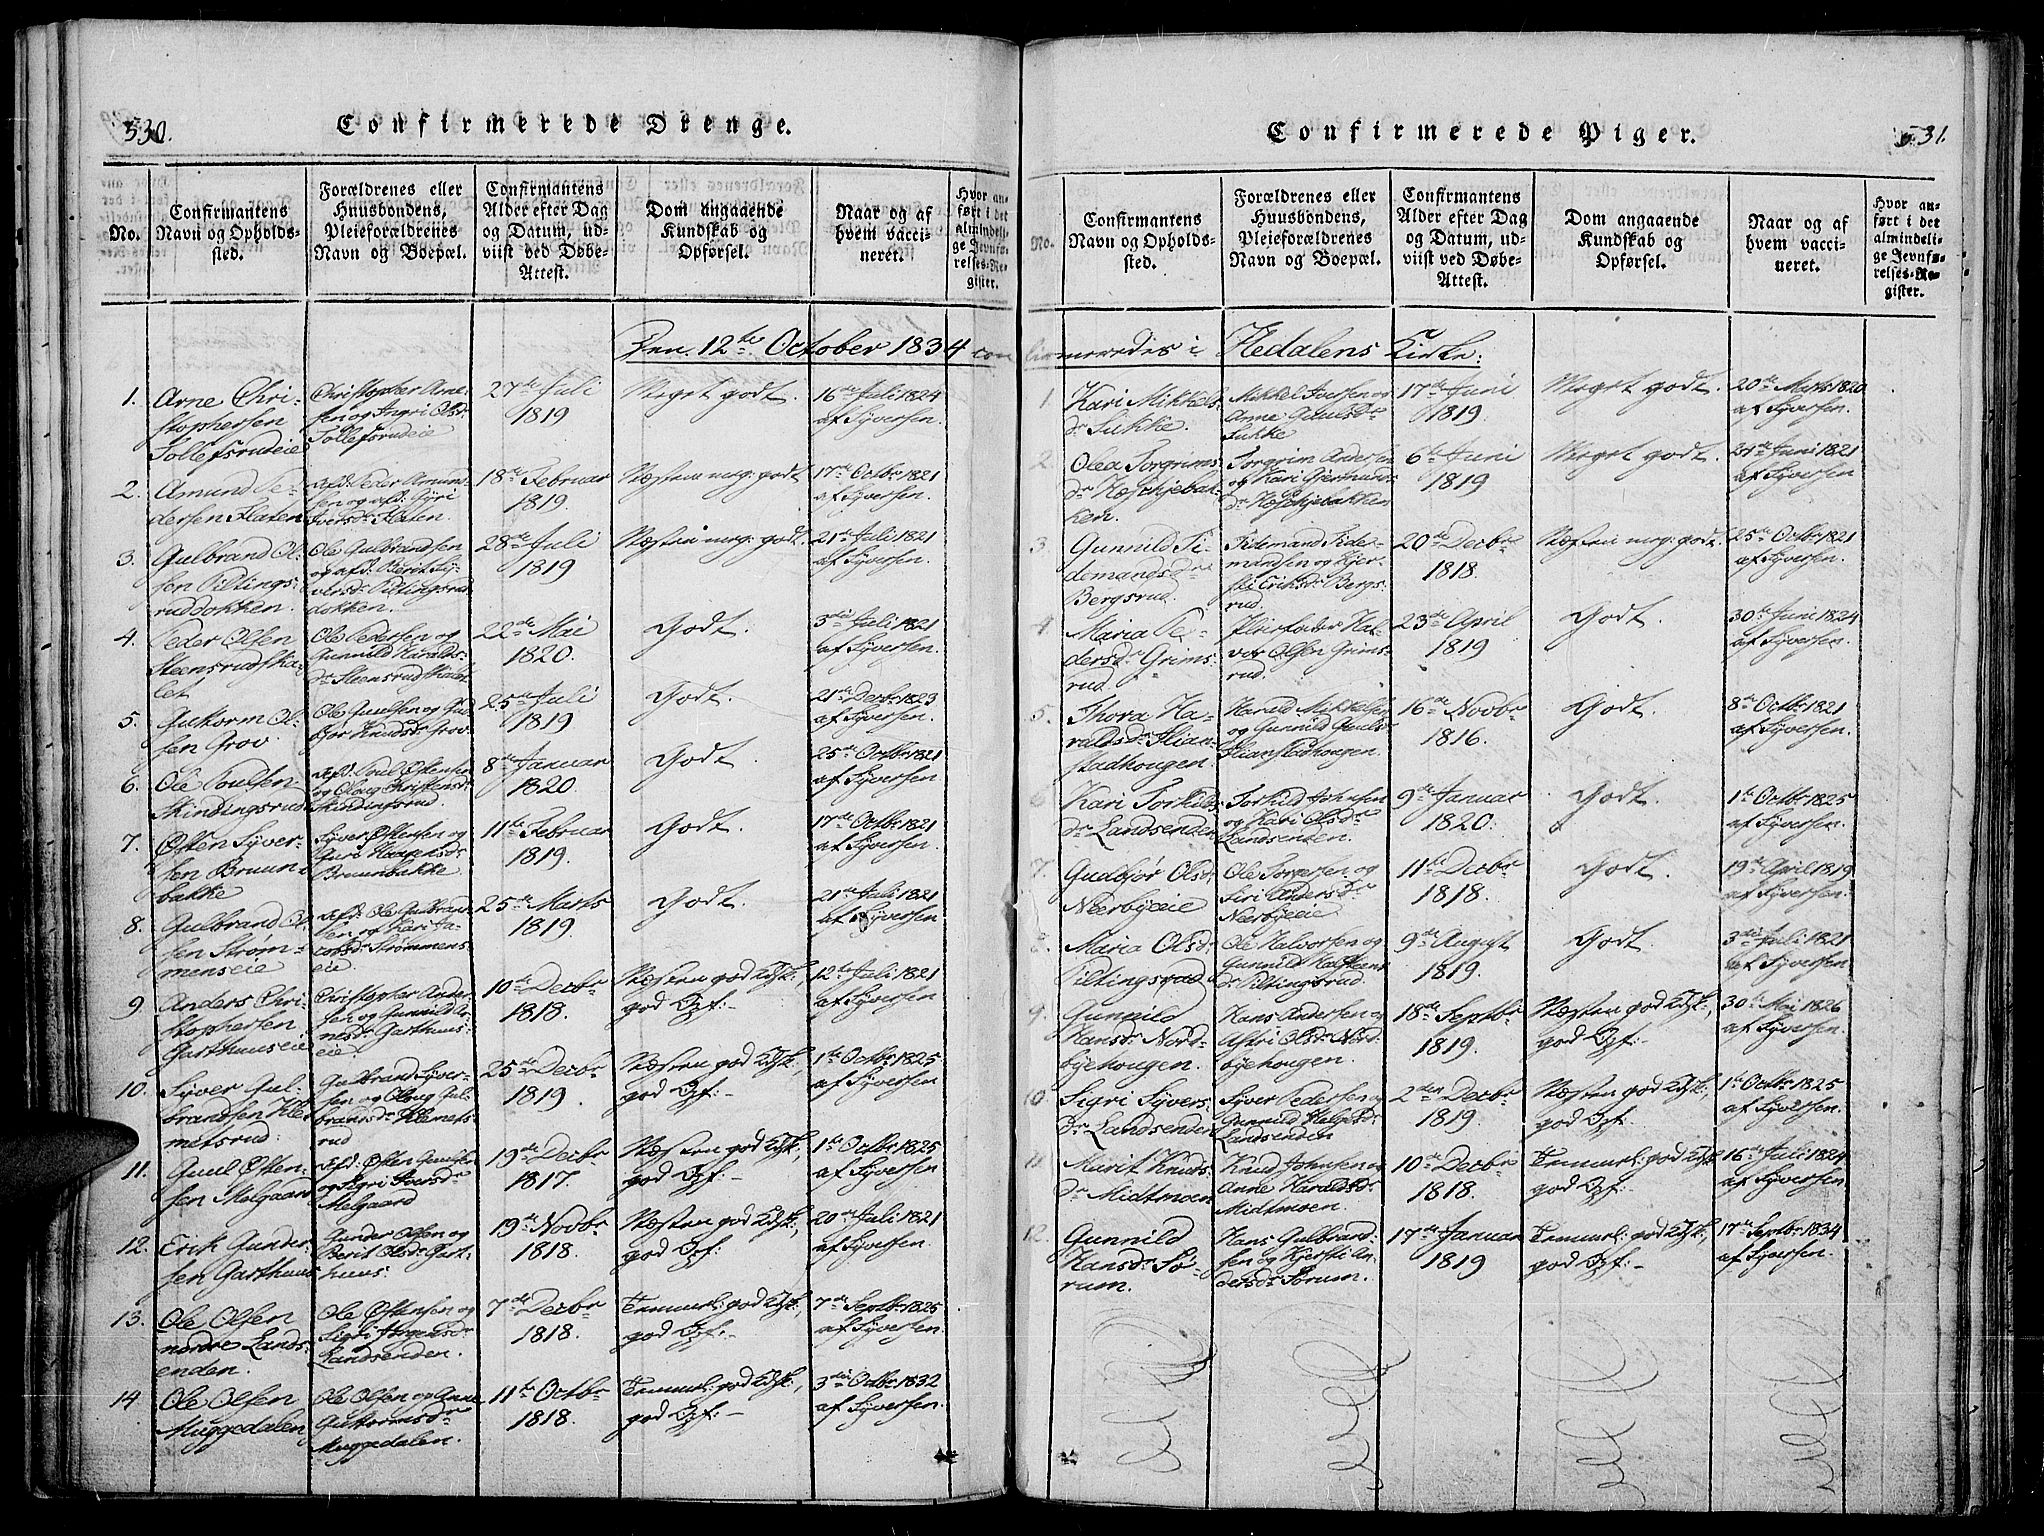 530.
Confirmerede Drenge.
No.
Confirmantens
Navn og Opholds-
sted.
Forældrenes eller
Huusbondens,
Pleieforældrenes
Navn og Boepæl.
Confirmantens
Alder efter Dag
og Datum, ud-
viist ved Døbe-
Attest.
Dom angaaende
Kundskab og
Opførsel.
Naar og af
hvem vacci-
neret.
Hvor an-
ført i det
almindeli-
ge Jevnfø-
relses-Re-
gister.
Den 12te October 1834 con
1.
Arne Chri-
stophersen
Sollefsrudeie
Christopher Arne-
sen og Ingri Olsd
Sollefsrudeie
27de Juli
1819
Meget godt.
16de Juli 1824
af Syversen.
2.
Amund Pe-
dersen Flaten
afd: Peder Amund-
sen og afd:
Iversdr Flaten.
18de Februar
1819.
Næsten meg: godt
17de Octbr 1821
af Syversen.
3.
Gulbrand Ol-
sen Piltings-
ruddokken.
Ole Gulbrandsen
og afd: Berit Sy-
versdr Piltingsrud
dokken.
28de Juli
1819
Næsten meg: godt.
21de Juli 1821
af Syversen.
4.
Peder Olsen
Steensrudska-
let
Ole Pedersen og
Gunnild Haralds-
dr Steensrudskalet
22de Mai
1820.
Godt.
3die Juli 1821
af Syversen.
5.
Guttorm Ol-
sen Grov.
Ole Guulsen og Gud-
bjør Knudsdr Grov.
25de Juli
1819
Godt.
21de Decbr 1823
af Syversen.
6.
Ole Poulsen
Skindingsrud
Afd: Poul Østensen
og Oloug Christensdr
Skindingsrud.
8de Januar
1820.
Godt.
25de Octbr 1821
af Syversen.
7.
Østen Syver-
sen Bruun-
bakke
Syver Østensen og
Guri Haagensdr
Bruunbakke
11te Februar
1819.
Godt.
17de Octbr 1821
af Syversen.
8.
Gulbrand Ol-
sen Strøm-
menseie
Afd: Ole Gulbrand-
sen og Kari Ja-
cobsdr Strømmens-
eie.
25de Marts
1819.
Godt.
21de Juli 1821
af Syversen.
9
Anders Chri-
stophersen
Garthuuseie
Christopher Ander-
sen og Gunnild Ar-
nesdr Garthuus-
eie.
10de Decbr
1818.
Næsten god Kdsk:
god Opf:-
12te Juli 1821
af Syversen.
10.
Syver Gul-
brandsen Kle-
metsrud.
Gulbrand Syver-
sen og Oloug Gul-
brandsdr Klemets-
rud
25de Decbr
1819.
Næsten god Kdsk:,
god Opf:-
1te Octbr 1825
af Syversen.
11.
Guul Østen-
sen Melgaard
Afd: Østen Guulsen
og Sigri Iversdr
Melgaard
19de Decbr
1817.
Næsten god Kdsk:,
god Opf:-
1te Octbr 1825
af Syversen.
12.
Erik Gunder-
sen Garthuus
Gunder Olsen og
Berit Olsdr Gart-
huus.
19de Novbr
1818.
Næsten god Kdsk:,
god Opf:-
20de Juli 1821
af Syversen.
13.
Ole Olsen
nordre Lands-
enden.
Ole Østensen og
Sigri Jørgensdr
Landsenden.
7de Decbr
1818.
Temmel: god Kdsk:,
god Opf:-
7de Septbr 1825
af Syversen.
14
Ole Olsen
Muggedalen
Ole Olsen og Anne
Guttormsdr
Muggedalen.
11te Octbr
1818.
Temmel: god Kdsk:,
god Opf:-
3die Octbr 1832
af Syversen.
Confirmerede Piger.
531.
No.
Confirmantens
Navn og Opholds-
sted.
Forældrenes eller
Huusbondens,
Pleieforældrenes
Navn og Boepæl.
Confirmantens
Alder efter Dag
og Datum, ud-
viist ved Døbe-
Attest.
Dom angaaende
Kundskab og
Opførsel.
Naar og af
hvem vacci-
neret.
Hvor an-
ført i det
almindeli-
ge Jevnfø-
relses-Re-
gister.
firmeredes i Hedalens Kirke:
1.
Kari Mikkels-
dr Sukke.
Mikkel Iversen og
Anne Guulsdr
Sukke
17de Juni
1819.
Meget godt.
20de Marts 1820
af Syversen.
2.
Olea Torgrims-
dr Hæskjebak-
ken.
Torgrim Andersen
og Kari Gjermunds-
dr Hæskjebakken
6te Juni
1819
Meget godt.
21de Juni 1821
af Syversen.
3.
Gunnild Ti-
demandsdr
Bergsrud.
Tidemand Tide-
mandsen og Kjer-
sti Eriksdr Bergs-
rud.
20de Decbr
1818.
Næsten meg: godt.
25de Octbr 1821
af Syversen.
4.
Maria Pe-
dersdr Grims-
rud.
Pleiefader Hal-
vor Olsen Grims-
rud.
23de April
1819
Godt.
30te Juni 1824
af Syversen.
5.
Thora Ha-
raldsdr Flian-
stadhougen
Harald Mikkelsen
og Gunnild Guulsdr
Flianstadhougen.
16de Novbr
1816.
Godt.
8de Octbr 1821
af Syversen.
6
Kari Torkilds-
dr Landsenden
Torkild Johnsen
og Kari Olsdr
Landsenden.
9de Januar
1820.
Godt.
1te Octbr 1825
af Syversen.
7.
Gudbjør Olsdr
Nærbyeie
Ole Torgersen og
Siri Andersdr
Nærbyeie
11te Decbr
1818.
Godt.
19de April 1819
af Syversen.
8.
Maria Olsdr
Piltingsrud
Ole Halvorsen og
Gunnild
dr Piltingsrud.
9de August
1819.
Godt.
3die Juli 1821
af Syversen
9.
Gunnild
Hansdr Nord-
byehougen.
Hans Andersen og
Astri Olsdr Nord-
byehougen.
18de Septbr
1819.
Næsten god Kdsk:,
god Opf:-
30te Mai 1826
af Syversen.
10
Sigri Syvers-
dr Landsenden
Syver Pedersen og
Gunnild Helgesdr
Landsenden
2den Decbr
1819.
Næsten god Kdsk:,
god Opf:
1te Octbr 1825
af Syversen.
11
Marit Knuds-
dr Midtmoen
Knud Johnsen og
Anne Haraldsdr
Midtmoen
10de Decbr
1818.
Temmel: god Kdsk
god Opf:-
16de Juli 1824
af Syversen.
12.
Gunnild
Hansdr Sø-
rum.
Hans Gulbrand-
sen og Kjersti An-
dersdr Sørum.
17de Januar
1819
Temmel: god Kdsk:,
god Opf:-
17de Septbr 1834
af Syversen.